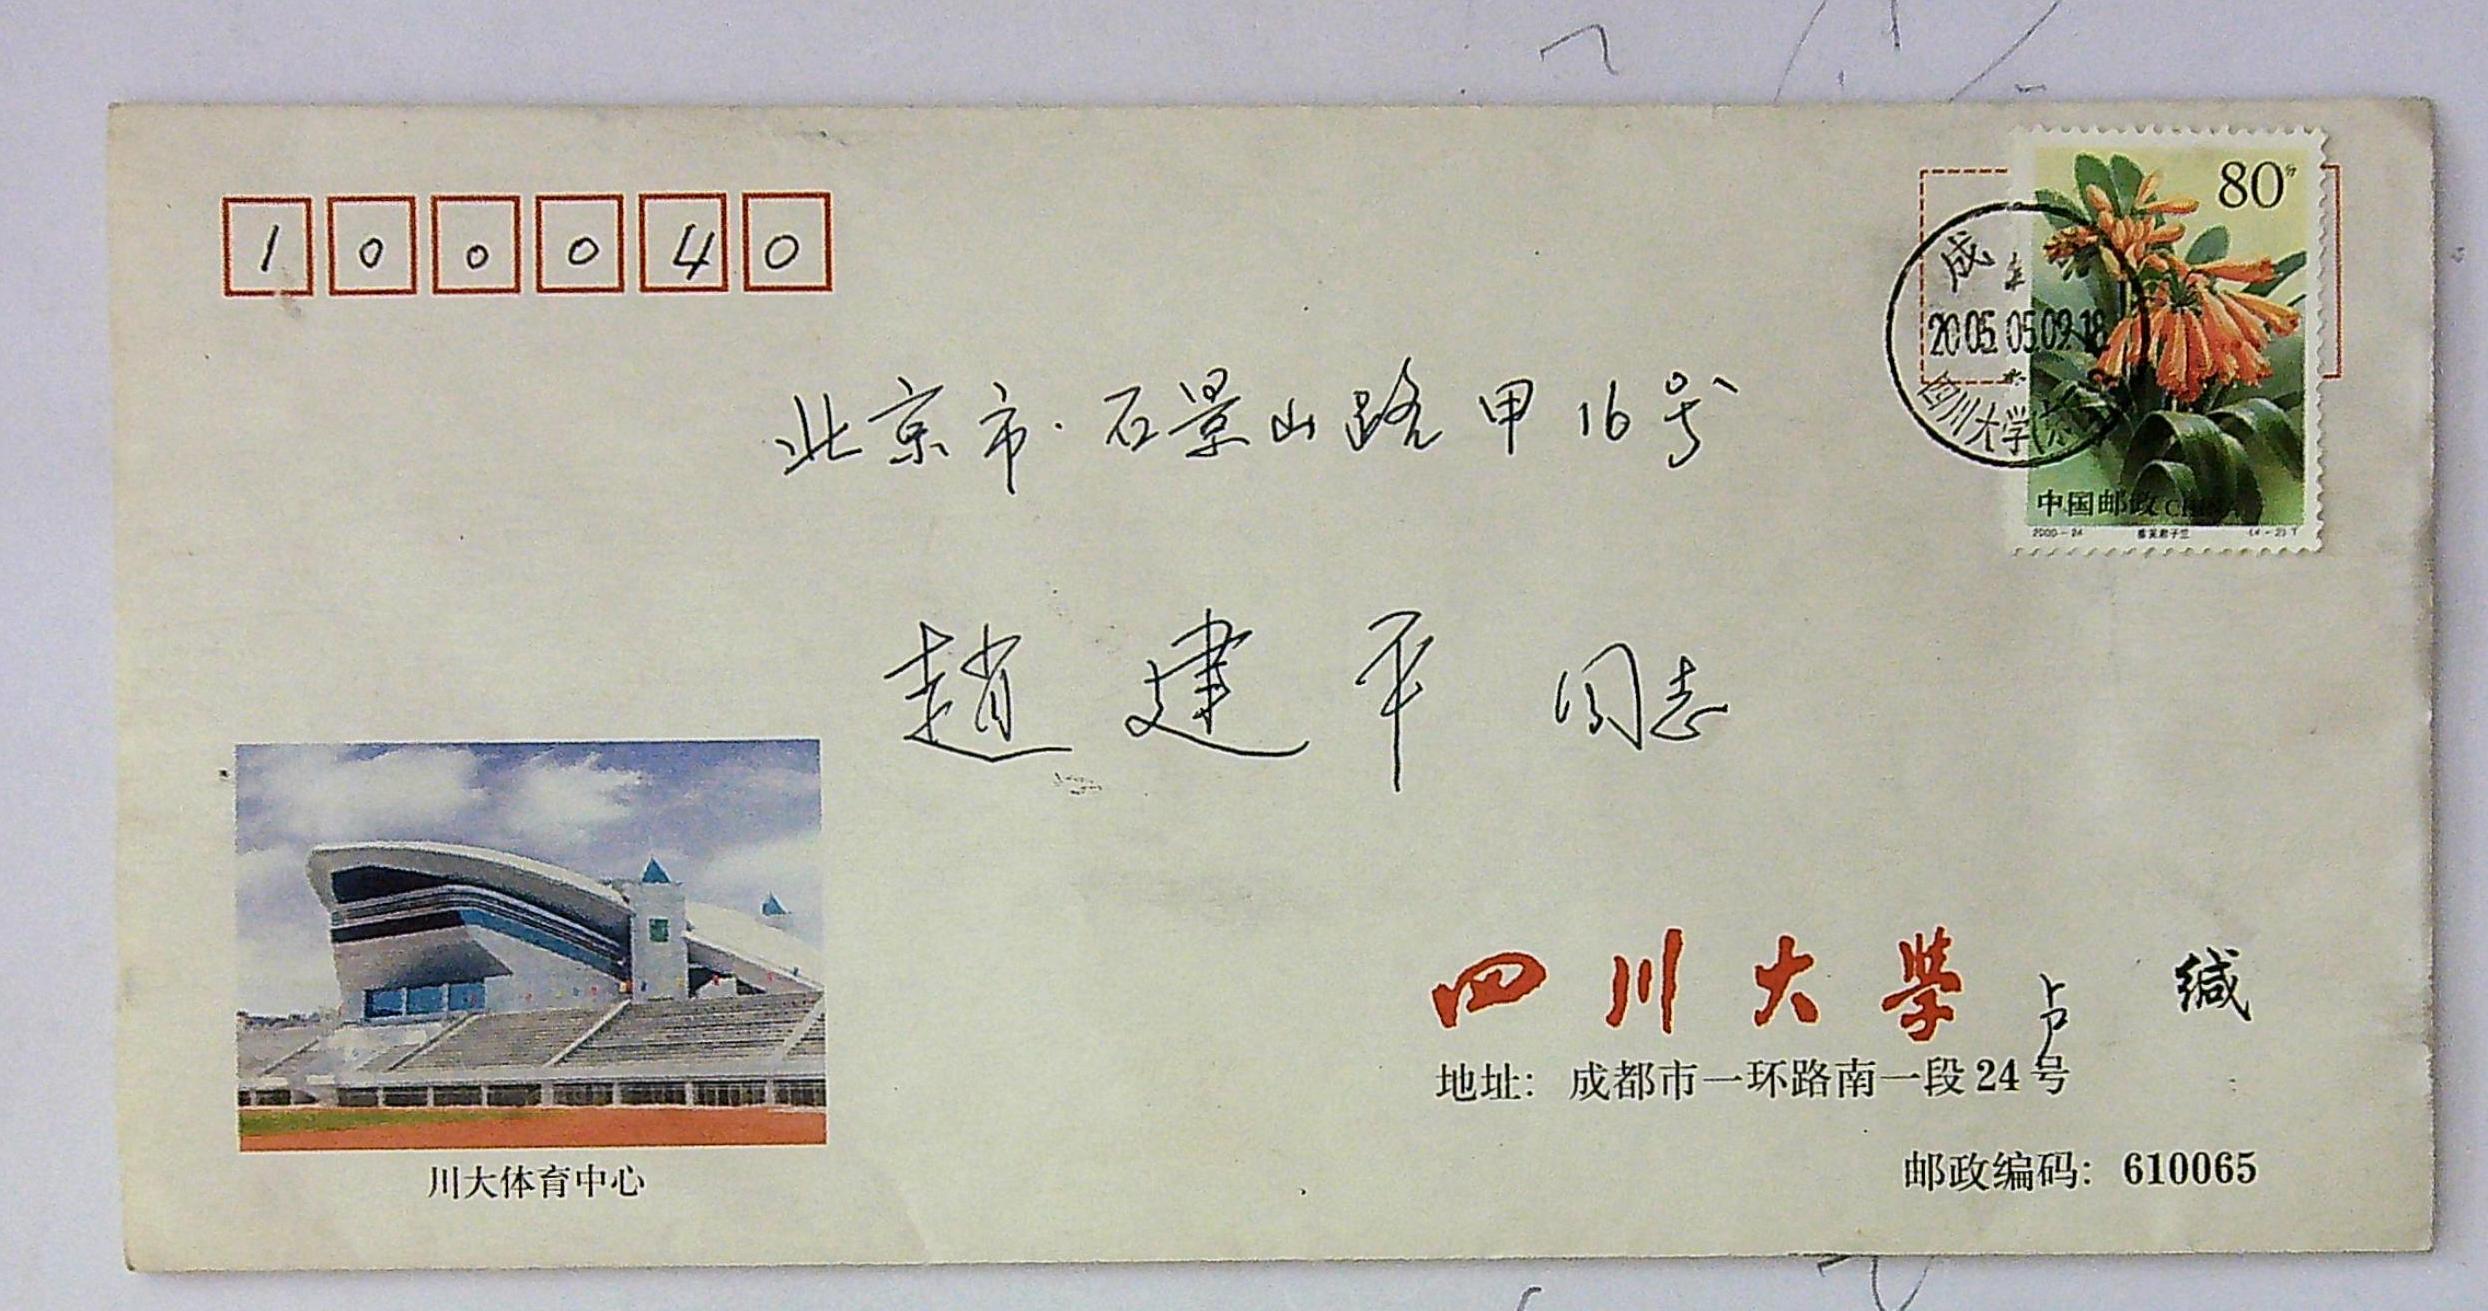 100040
80分
成
2005.05.09.18
四川大学
中国邮政 CHINA
2000-24 垂笑君子兰 (4-2)T
北京市·石景山路甲16号
趙建平 同志
四川大学 卢 缄
地址：成都市一环路南一段24号
邮政编码：610065
川大体育中心